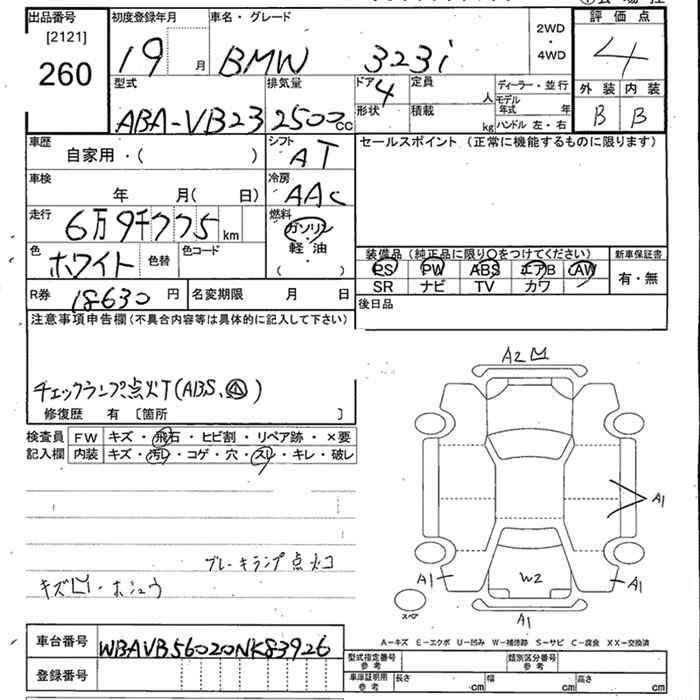 出品番号
[2121]
260
初度登録年月
19 月
車名・グレード
BMW 323i
2WD
・
4WD
評 価 点
4
型式
ABA-VB23
排気量
2500 CC
ドア
4
定員
人
形状
積載
kg
ディーラー・並行
モデル年式 年
ハンドル 左・右
外 装 内 装
B B
車歴
自家用・( )
シフト
AT
セールスポイント (正常に機能するものに限ります)
車検
年 月( 日)
冷房
AAC
走行
6万9千775 km
燃料
ガソリン
軽・油
・
( )
色
ホワイト
色替
色コード
装備品 (純正品に限り○をつけてください)
新車保証書
PS PW ABS エアB AW
SR ナビ TV カワ
有・無
R券 18630 円
名変期限 月 日
後日品
注意事項申告欄 (不具合内容等は具体的に記入して下さい)
チェックランプ点火T(ABS、)
修復歴 有 〔箇所 〕
検査員 FW キズ・飛石・ヒビ割・リペア跡・×要
記入欄 内装 キズ・汚レ・コゲ・穴・スリ・キレ・破レ
ブレーキランプ点火コ
キズ凹・ホシュウ
A2凹
A1
A1
W2
A1
A1
スペア
A-キズ E-エクボ U-凹み W-補修跡 S-サビ C-腐食 XX-交換済
車台番号 WBAVB56020NK83926
登録番号
型式指定番号
参考
類別区分番号
参考
車庫証明用
参考
長さ cm
幅 cm
高さ cm